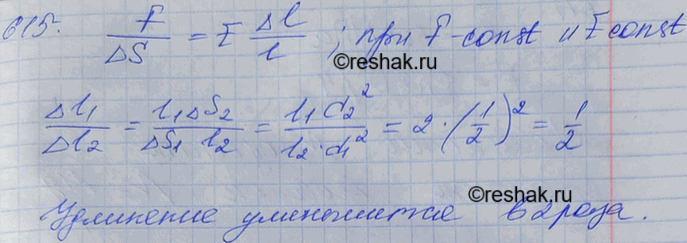 615. F/ΔS = E Δl/l ; при F-const и E const
©reshak.ru
Δl₁/Δl₂ = l₁ΔS₂/ΔS₁ l₂ = l₁ d₂²/l₂·d₁² = 2·(1/2)² = 1/2
©reshak.ru
Удлинение уменьшится в 2 раза.